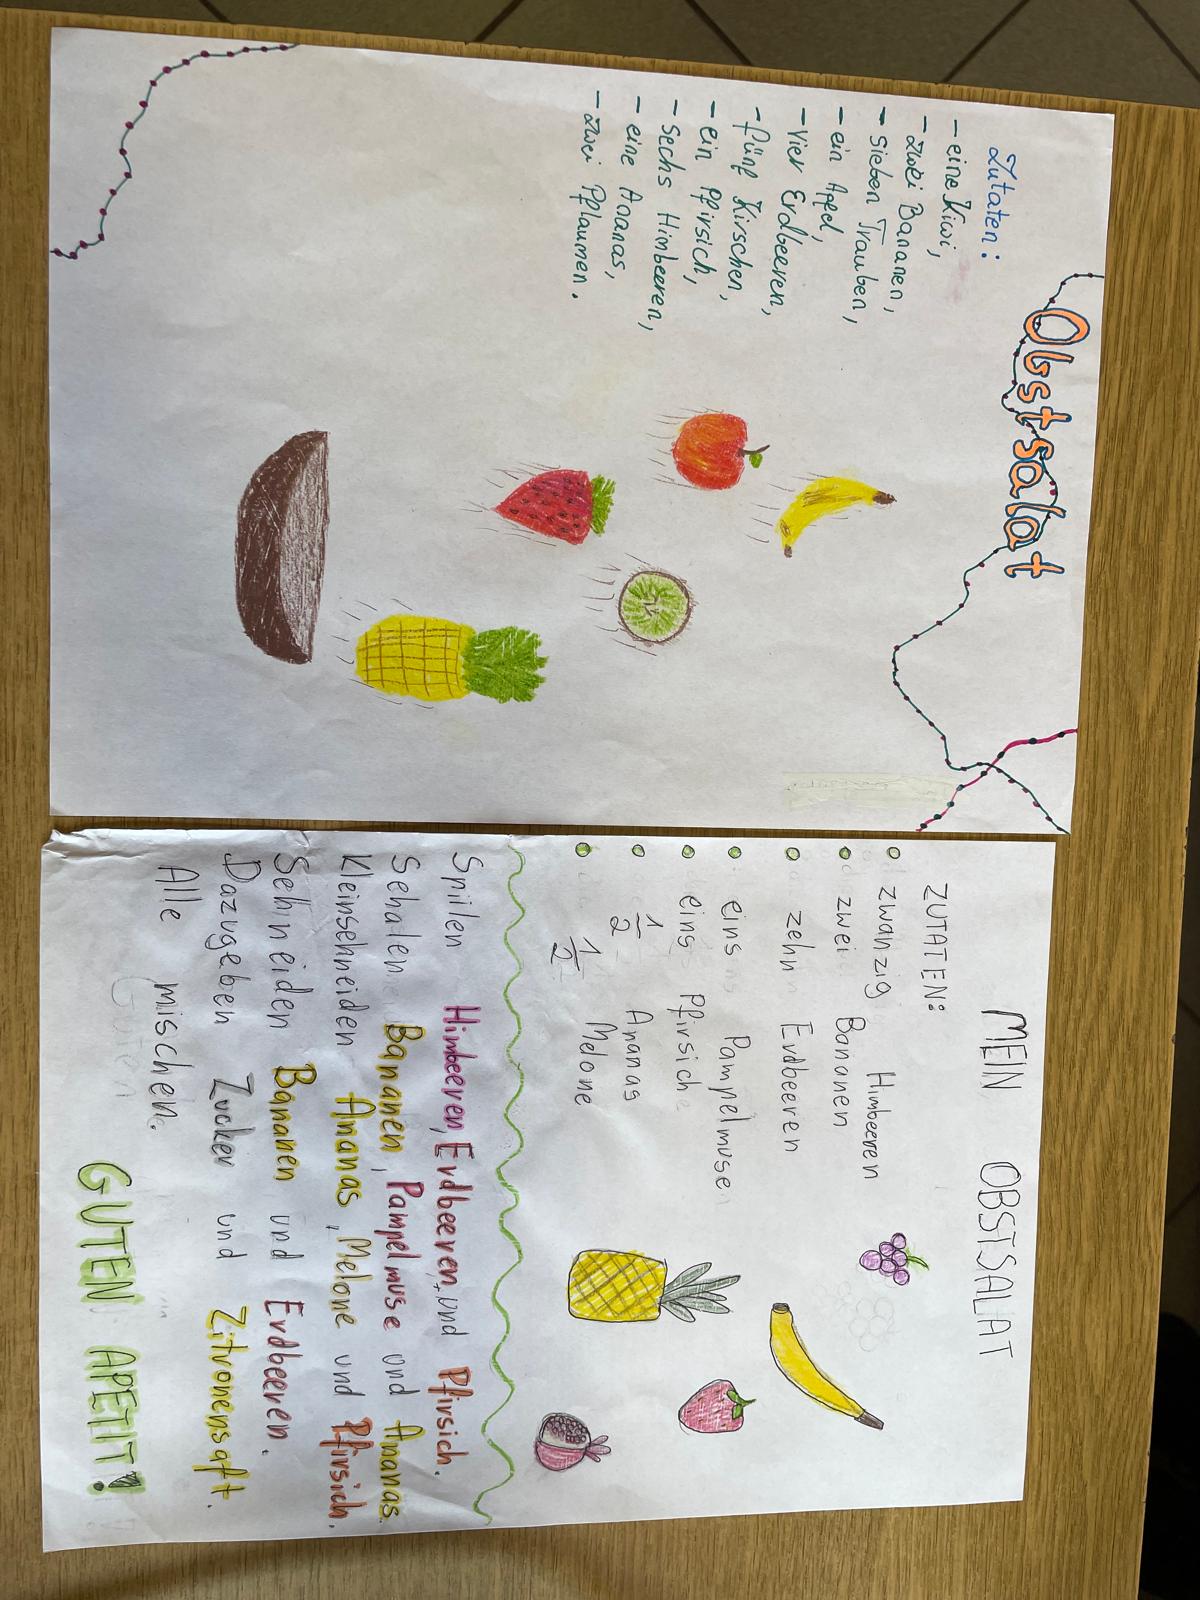 Obstsalat
Zutaten:
- eine Kiwi,
- zwei Bananen,
- sieben Trauben,
- ein Apfel,
- vier Erdbeeren,
- fünf Kirschen,
- ein Pfirsich,
- sechs Himbeeren,
- eine Ananas,
- zwei Pflaumen.
MEIN OBSTSALAT
ZUTATEN:
zwanzig Himbeeren
zwei Bananen
zehn Erdbeeren
eins Pampelmuse
eins Pfirsich
1/2 Ananas
1/2 Melone
Spülen Himbeeren, Erdbeeren, und Pfirsich.
Schalen Bananen, Pampelmuse und Ananas.
Kleinschneiden Ananas, Melone und Pfirsich.
Schneiden Bananen und Erdbeeren.
Dazugeben Zucker und Zitronensaft.
Alle mischen.
GUTEN APETIT!